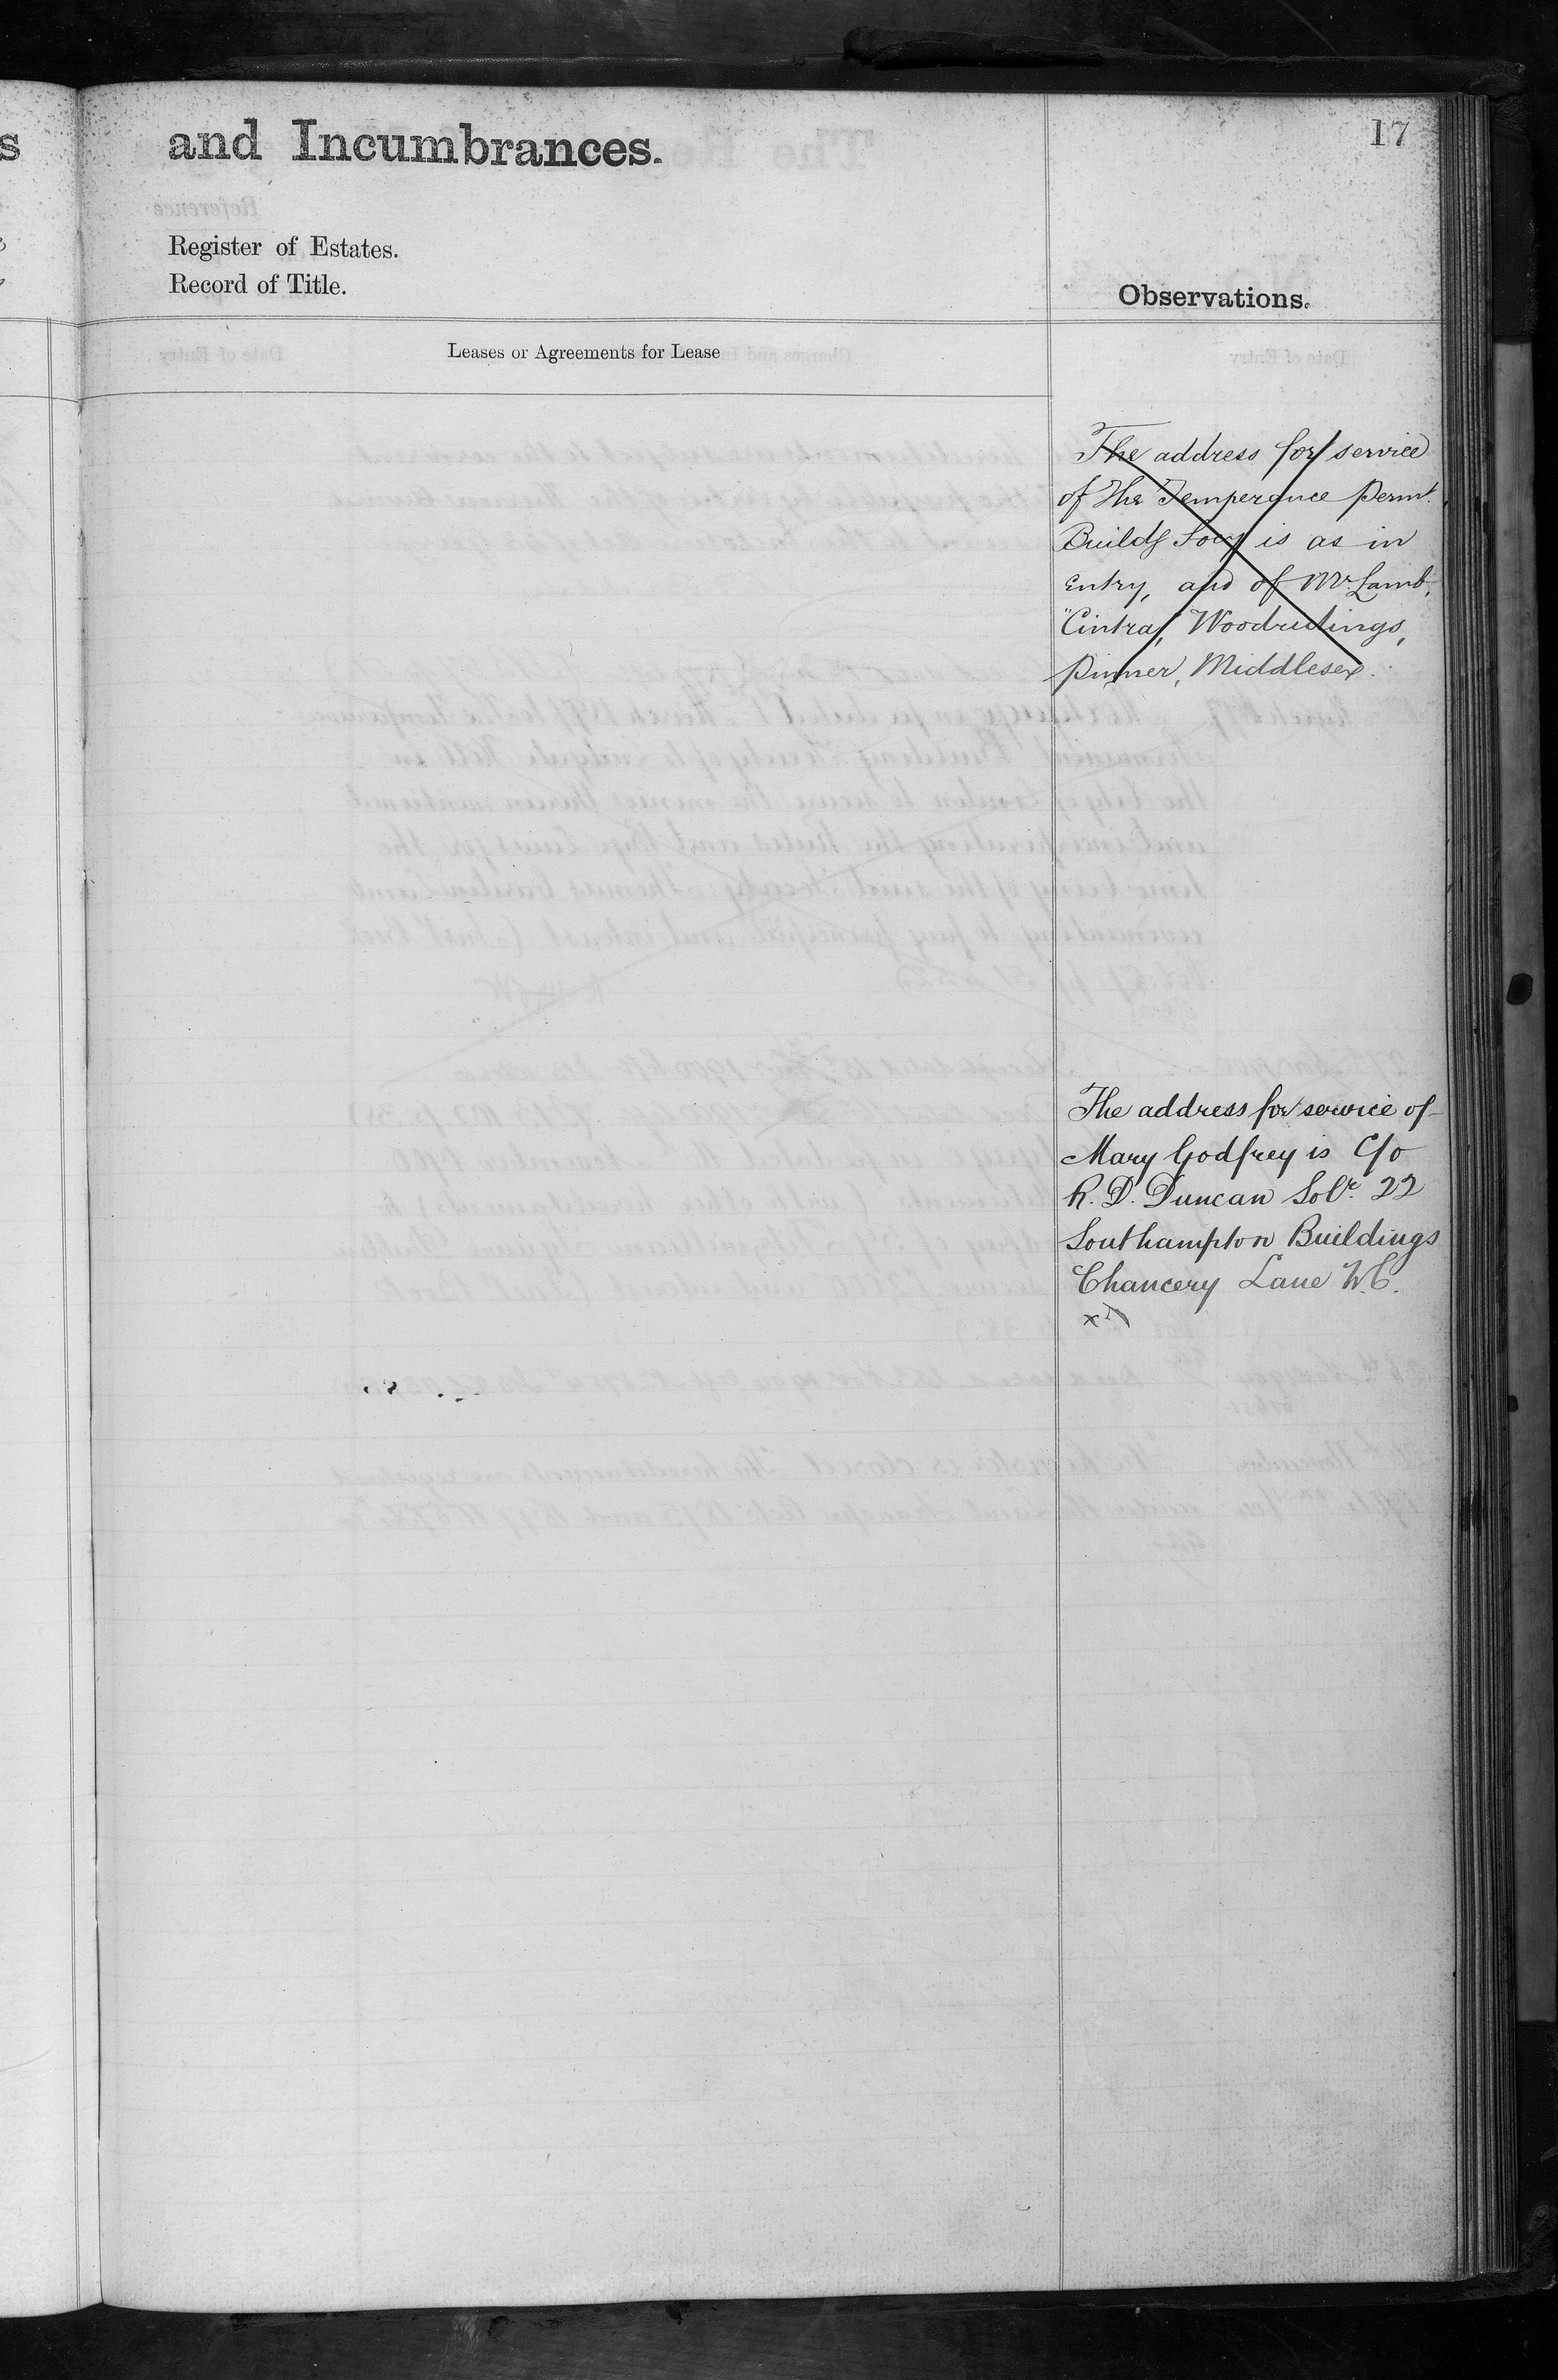 and Incumbrances.
17
Register of Estates.
Record of Title.
Observations.
Leases or Agreements for Lease
The address for service
of The Temperance Permt.
Buildg Socy is as in
Entry, and of Mr. Lamb,
"Cintra", Woodridings,
Pinner, Middlesex.
The address for service of
Mary Godfrey is C/o
R. D. Duncan Solr. 22
Southampton Buildings
Chancery Lane W.C.